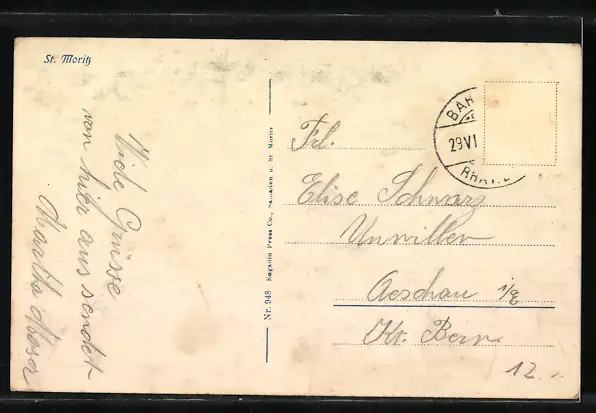 St. Moritz
Viele Grüsse
von hier aus sendet
Martha Moser
Nr. 948 Engadin Press Co., Samaden u. St. Moritz
BAH
29 VI
RHÄT. B
Frl.
Elise Schwarz
Aeschau i/E
Kt. Bern
12.-